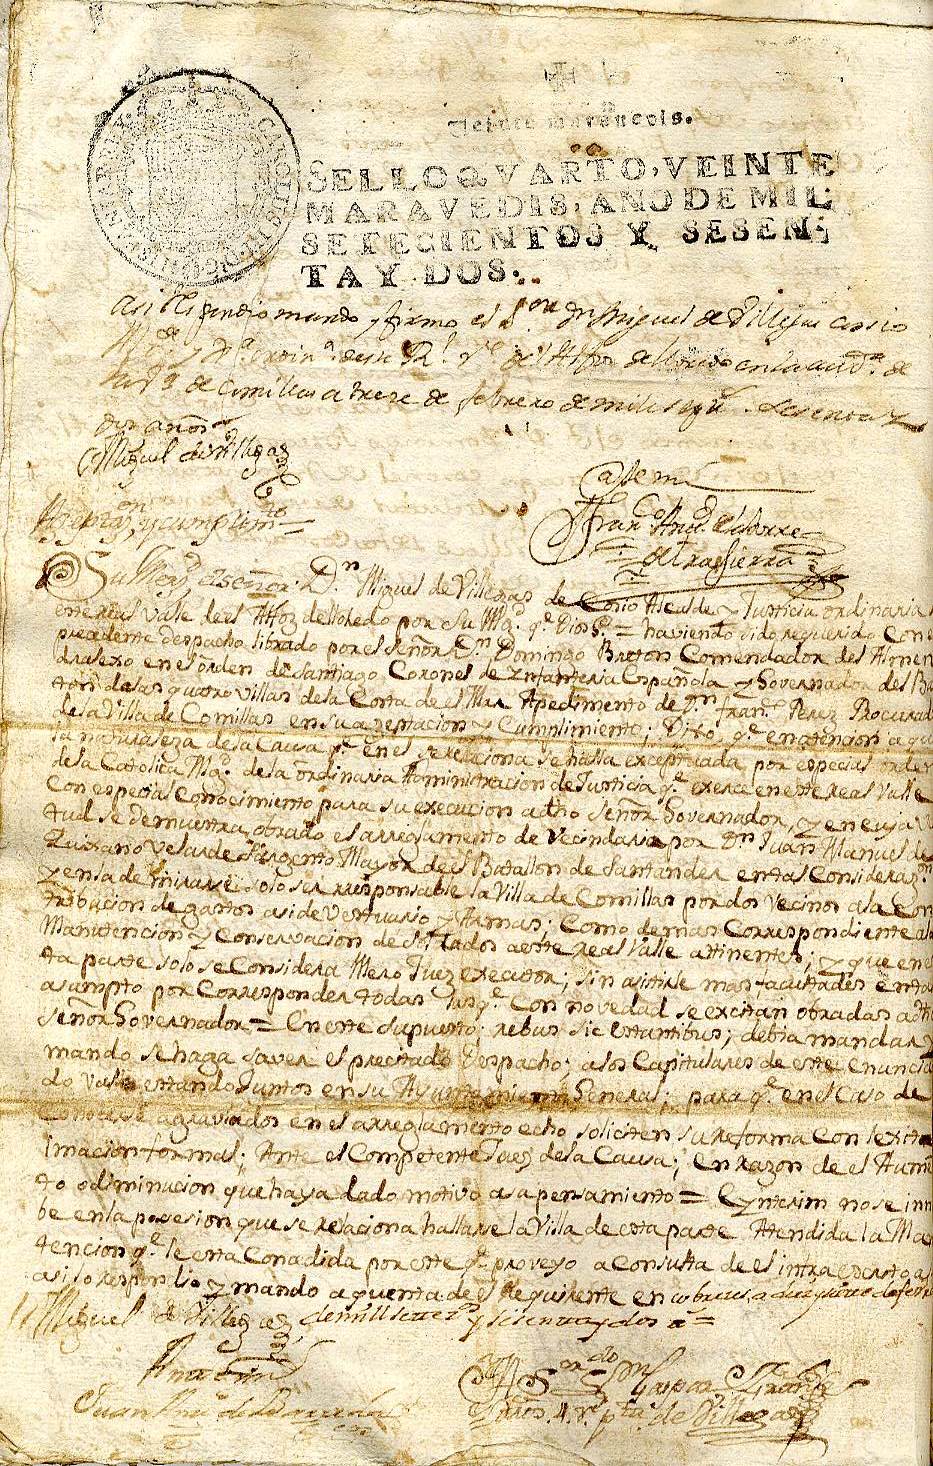 SELLO QVARTO, VEINTE
MARAVEDIS, AÑO DE MIL
SETECIENTOS Y SESEN-
TA Y DOS.
asi lo respondio mando y firmo el S.or Dn Miguel de Villegas cosio
de el Alfoz de lloredo en la aud.a de
de Comillas a treze de febrero de mil sesenta y
dos años
Miguel de Villegas
Ante mi
Fran.co Ant.o de la torre
de trasierra
Azeptaz.on y cumplim.to
Su Merz.d el señor D.n Miguel de Villegas de Cosio Alcalde y Justicia ordinaria
este real Valle de el Alfoz de lloredo por su Mg.d q.e Dios g.e = haviendo sido requerido Con
precedente despacho librado por el señor D.n Domingo Breton Comendador del Almen
dralexo en el orden de santiago Coronel de Ynfanteria Española y Governador del Ba
ton de las quatro Villas de la Costa de el Mar Apedimento de D.n fran.co Perez Procurad
de la Villa de Comillas en su azeptacion y Cumplimiento; Dixo q.e en atencion a q
la naturaleza de la Causa q.e en el se relaciona se halla exceptuada por especial orden
de la Catolica Mg.d de la ordinaria Administracion de Justicia q.e exerce en este real Valle
Con especial Conocimiento para su execucion a dho señor Governador, y en cuja Vi
tud se demuestra obrado el arreglamento de Vecindario por D.n Juan Manuel de
Velarde sargento Mayor de el Batallon de Santander en tal Consideraz.n
y en la de mirarse solo ser responsable la Villa de Comillas por dos Vecinos a la Con
tribucion de gastos asi de Vestuario y Armas; Como demas Correspondiente a la
Manutencion y Conservacion de soldados a este real Valle attinentes; y que en es
ta parte solo se Considera Mero Juez executor; sin asistirle mas facultades en tal
asumpto por Corresponder todas las q.e Con novedad se excitan obradas a dho
señor Governador = En este supuesto; rebus sic estantibus; debia mandar y
mando se haga saver el precitado Despacho; a los Capitulares de este enuncia
do valle estando Juntos en su Ayuntamiento General; para q.e en el Caso de
Conocerse agraviados en el arreglamento echo soliciten su reforma Con lexit
imacion formal; Ante el Competente Juez de la Causa; en razon de el Aumen
to o diminucion que haya dado motivo a su pensamiento = Cynterim no se inn
be en la posesion que se relaciona hallarse la Villa de esta parte Attendida la Ma
tencion q.e le esta Conzedida por este q.e proveyo a Consulta de el infraescrito as
asi lo respondio y mando a quenta de el Requirente en
de mill settez.s y sesenta y dos a.s =
Miguel de Villegas
Ante mi
Juan
Gaspar
de Villegas